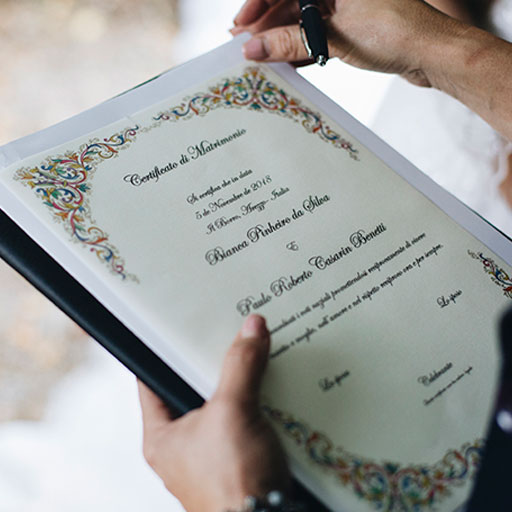 Certificato di Matrimonio
Si certifica che in data
5 de Novembre de 2018
Il Borro, Arezzo, Italia
Bianca Pinheiro da Silva
E
Paulo Roberto Casarin Benetti
nei voti nuziali promettendosi reciprocamente di vivere
e nel rispetto reciproco ora e per sempre.
Lo sposo
La sposa
Celebrante